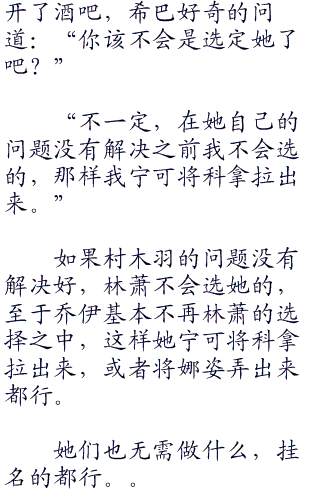 开了酒吧，希巴好奇的问
道：“你该不会是选定她了
吧？”
“不一定，在她自己的
问题没有解决之前我不会选
的，那样我宁可将科拿拉出
来。”
如果村木羽的问题没有
解决好，林萧不会选她的，
至于乔伊基本不再林萧的选
择之中，这样她宁可将科拿
拉出来，或者将娜姿弄出来
都行。
她们也无需做什么，挂
名的都行。。